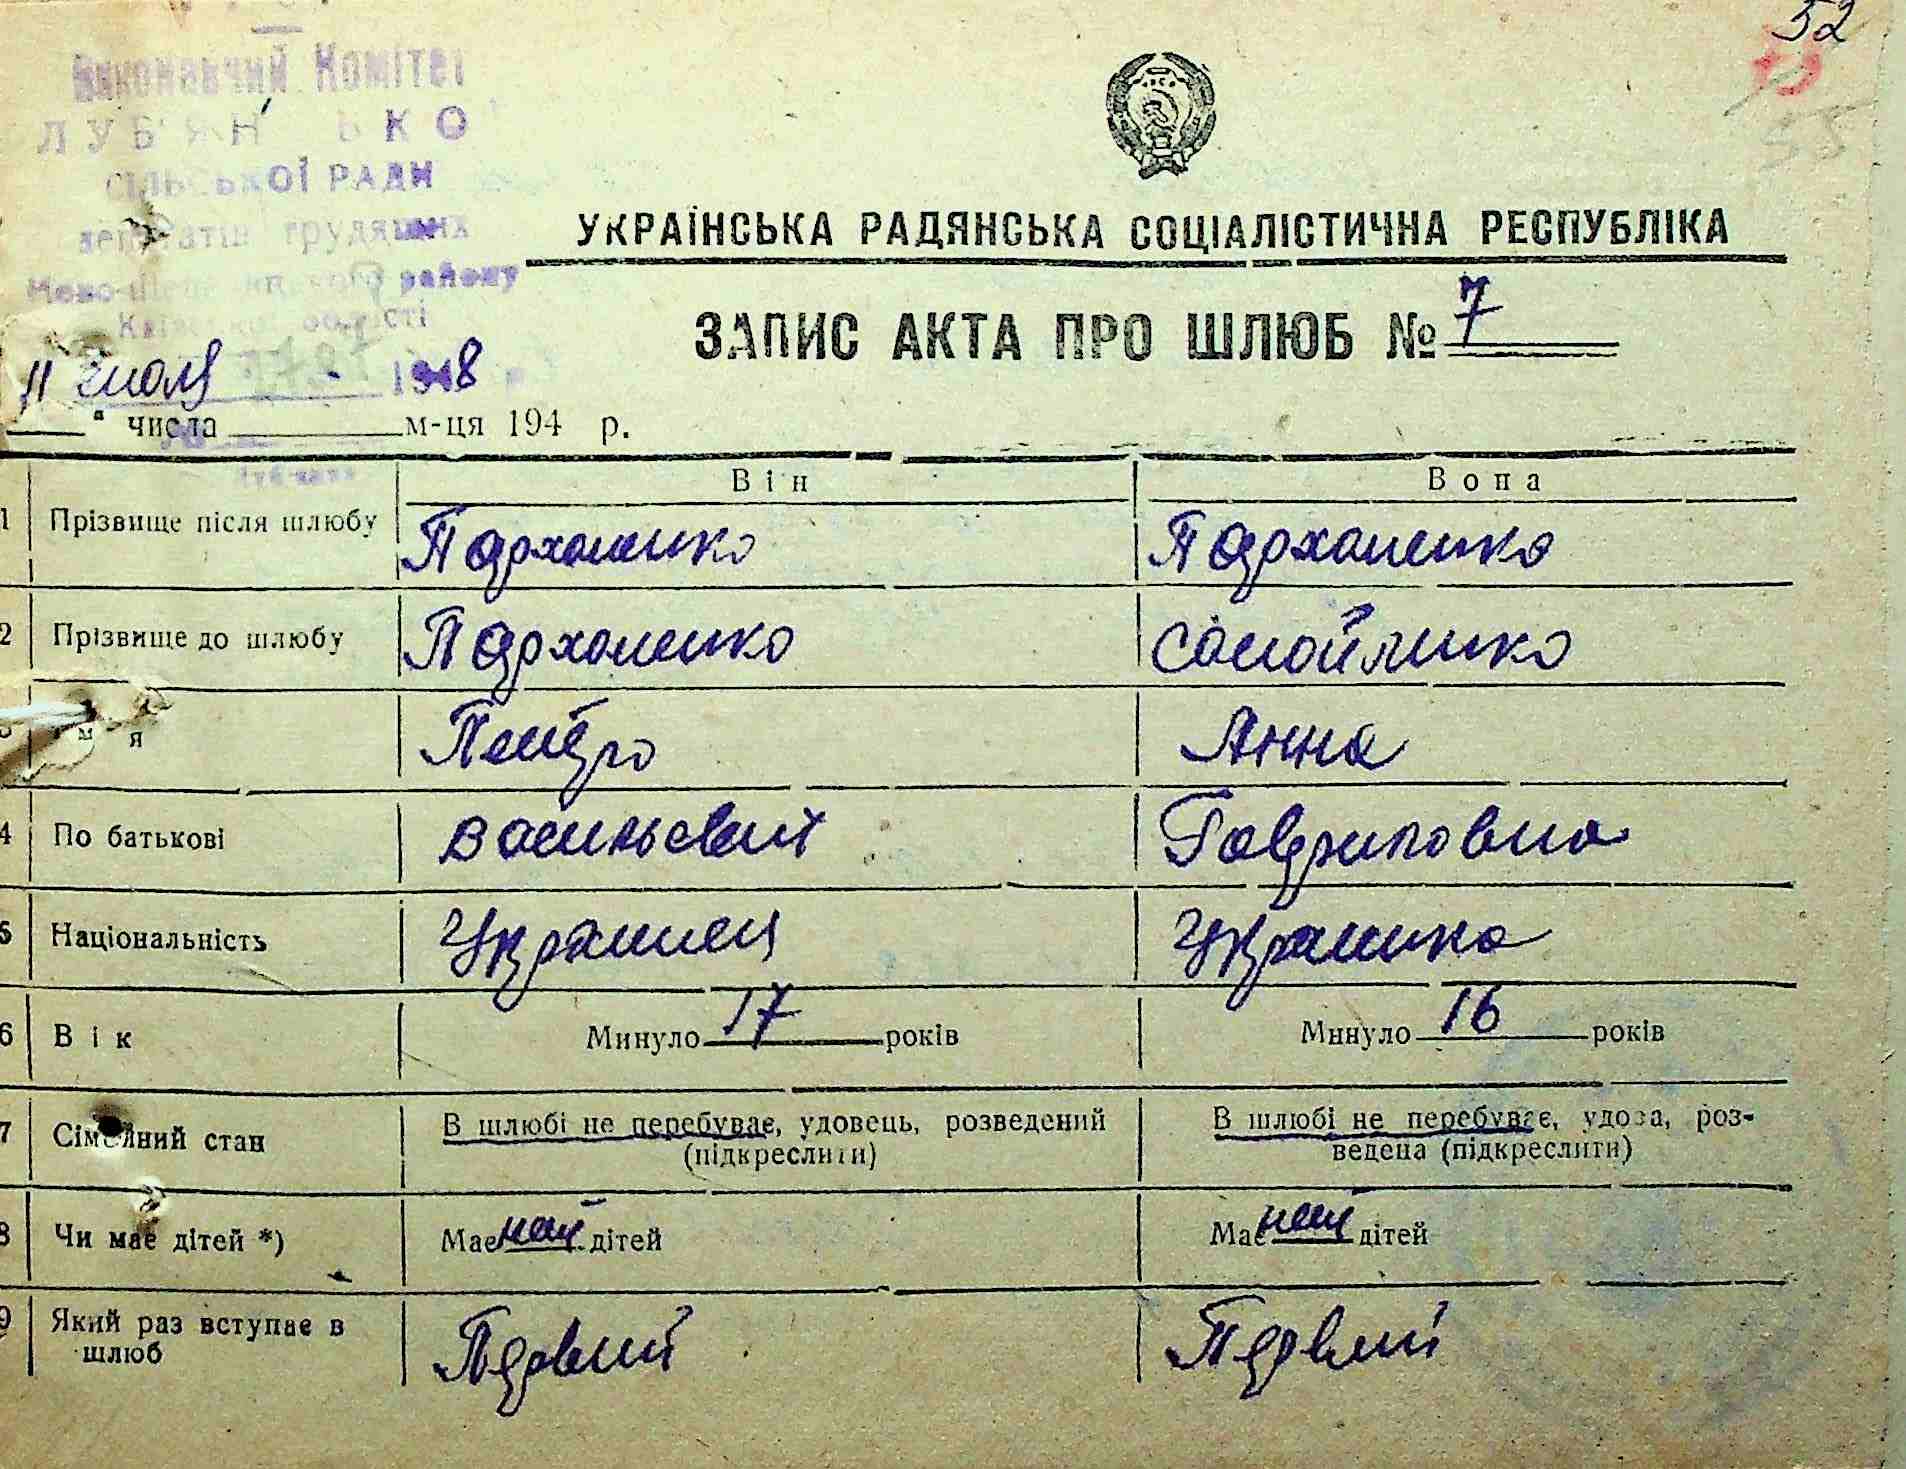 52
Виконавчий Комітет
СІЛЬСЬКОЇ РАДИ
депутатів трудящих
району
УКРАЇНСЬКА РАДЯНСЬКА СОЦІАЛІСТИЧНА РЕСПУБЛІКА
ЗАПИС АКТА ПРО ШЛЮБ № 7
11 июля 1948
" числа м-ця 194 р.
Він Вона
1 Прізвище після шлюбу Пархоменко Пархоменко
2 Прізвище до шлюбу Пархоменко Самойленко
Петро Анна
4 По батькові Васильевич Гавриловна
5 Національність Украинец Украинка
6 Вік Минуло 17 років Минуло 16 років
7 Сімейний стан В шлюбі не перебуває, удовець, розведений В шлюбі не перебуває, удова, роз-
(підкреслити) ведена (підкреслити)
8 Чи має дітей *) Має нет дітей Має нет дітей
9 Який раз вступає в Первый Первый
шлюб